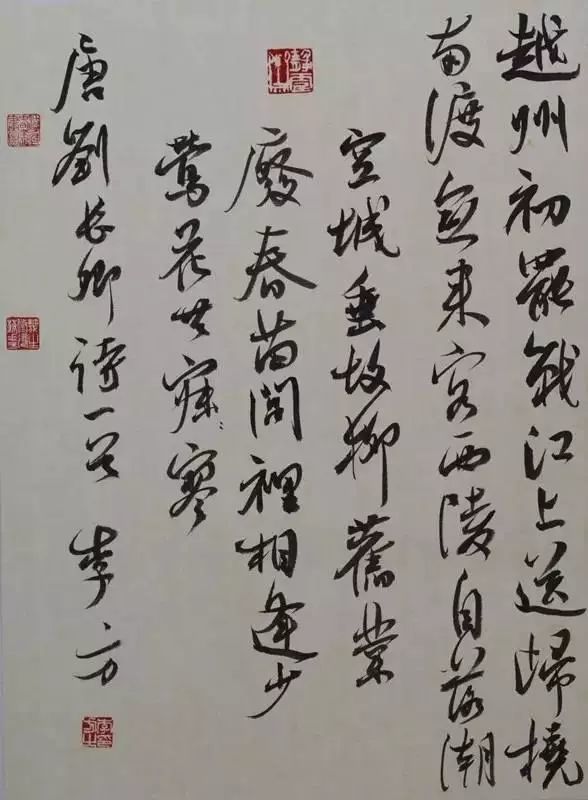 越州初罷戰江上送歸橈
南渡無来客西陵自落潮
空城垂故柳舊業
廢春苗閭裡相逢少
鶯花共寂寥
唐劉長卿詩一首 李方